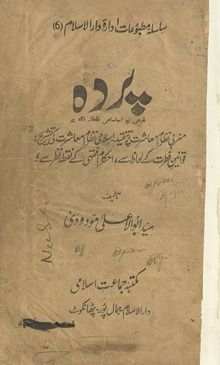 سلسلہ مطبوعات ادارہ دارالاسلام (۶)
پردہ
شرعی اور اجتماعی نقطۂ نگاہ سے
مغربی نظام معاشرت پر تنقید، اسلامی نظام معاشرت کی تشریح،
قوانین فطرت کے لحاظ سے، احکام فقہی کے نقطۂ نظر سے،
تالیف
سید ابوالاعلیٰ مودودی
مکتبہ جماعت اسلامی
دارالاسلام۔ جمال پور۔ پٹھانکوٹ